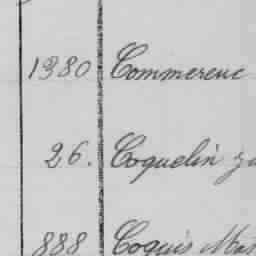 1380 Commereuc
26. Coquelin
888 Coquis